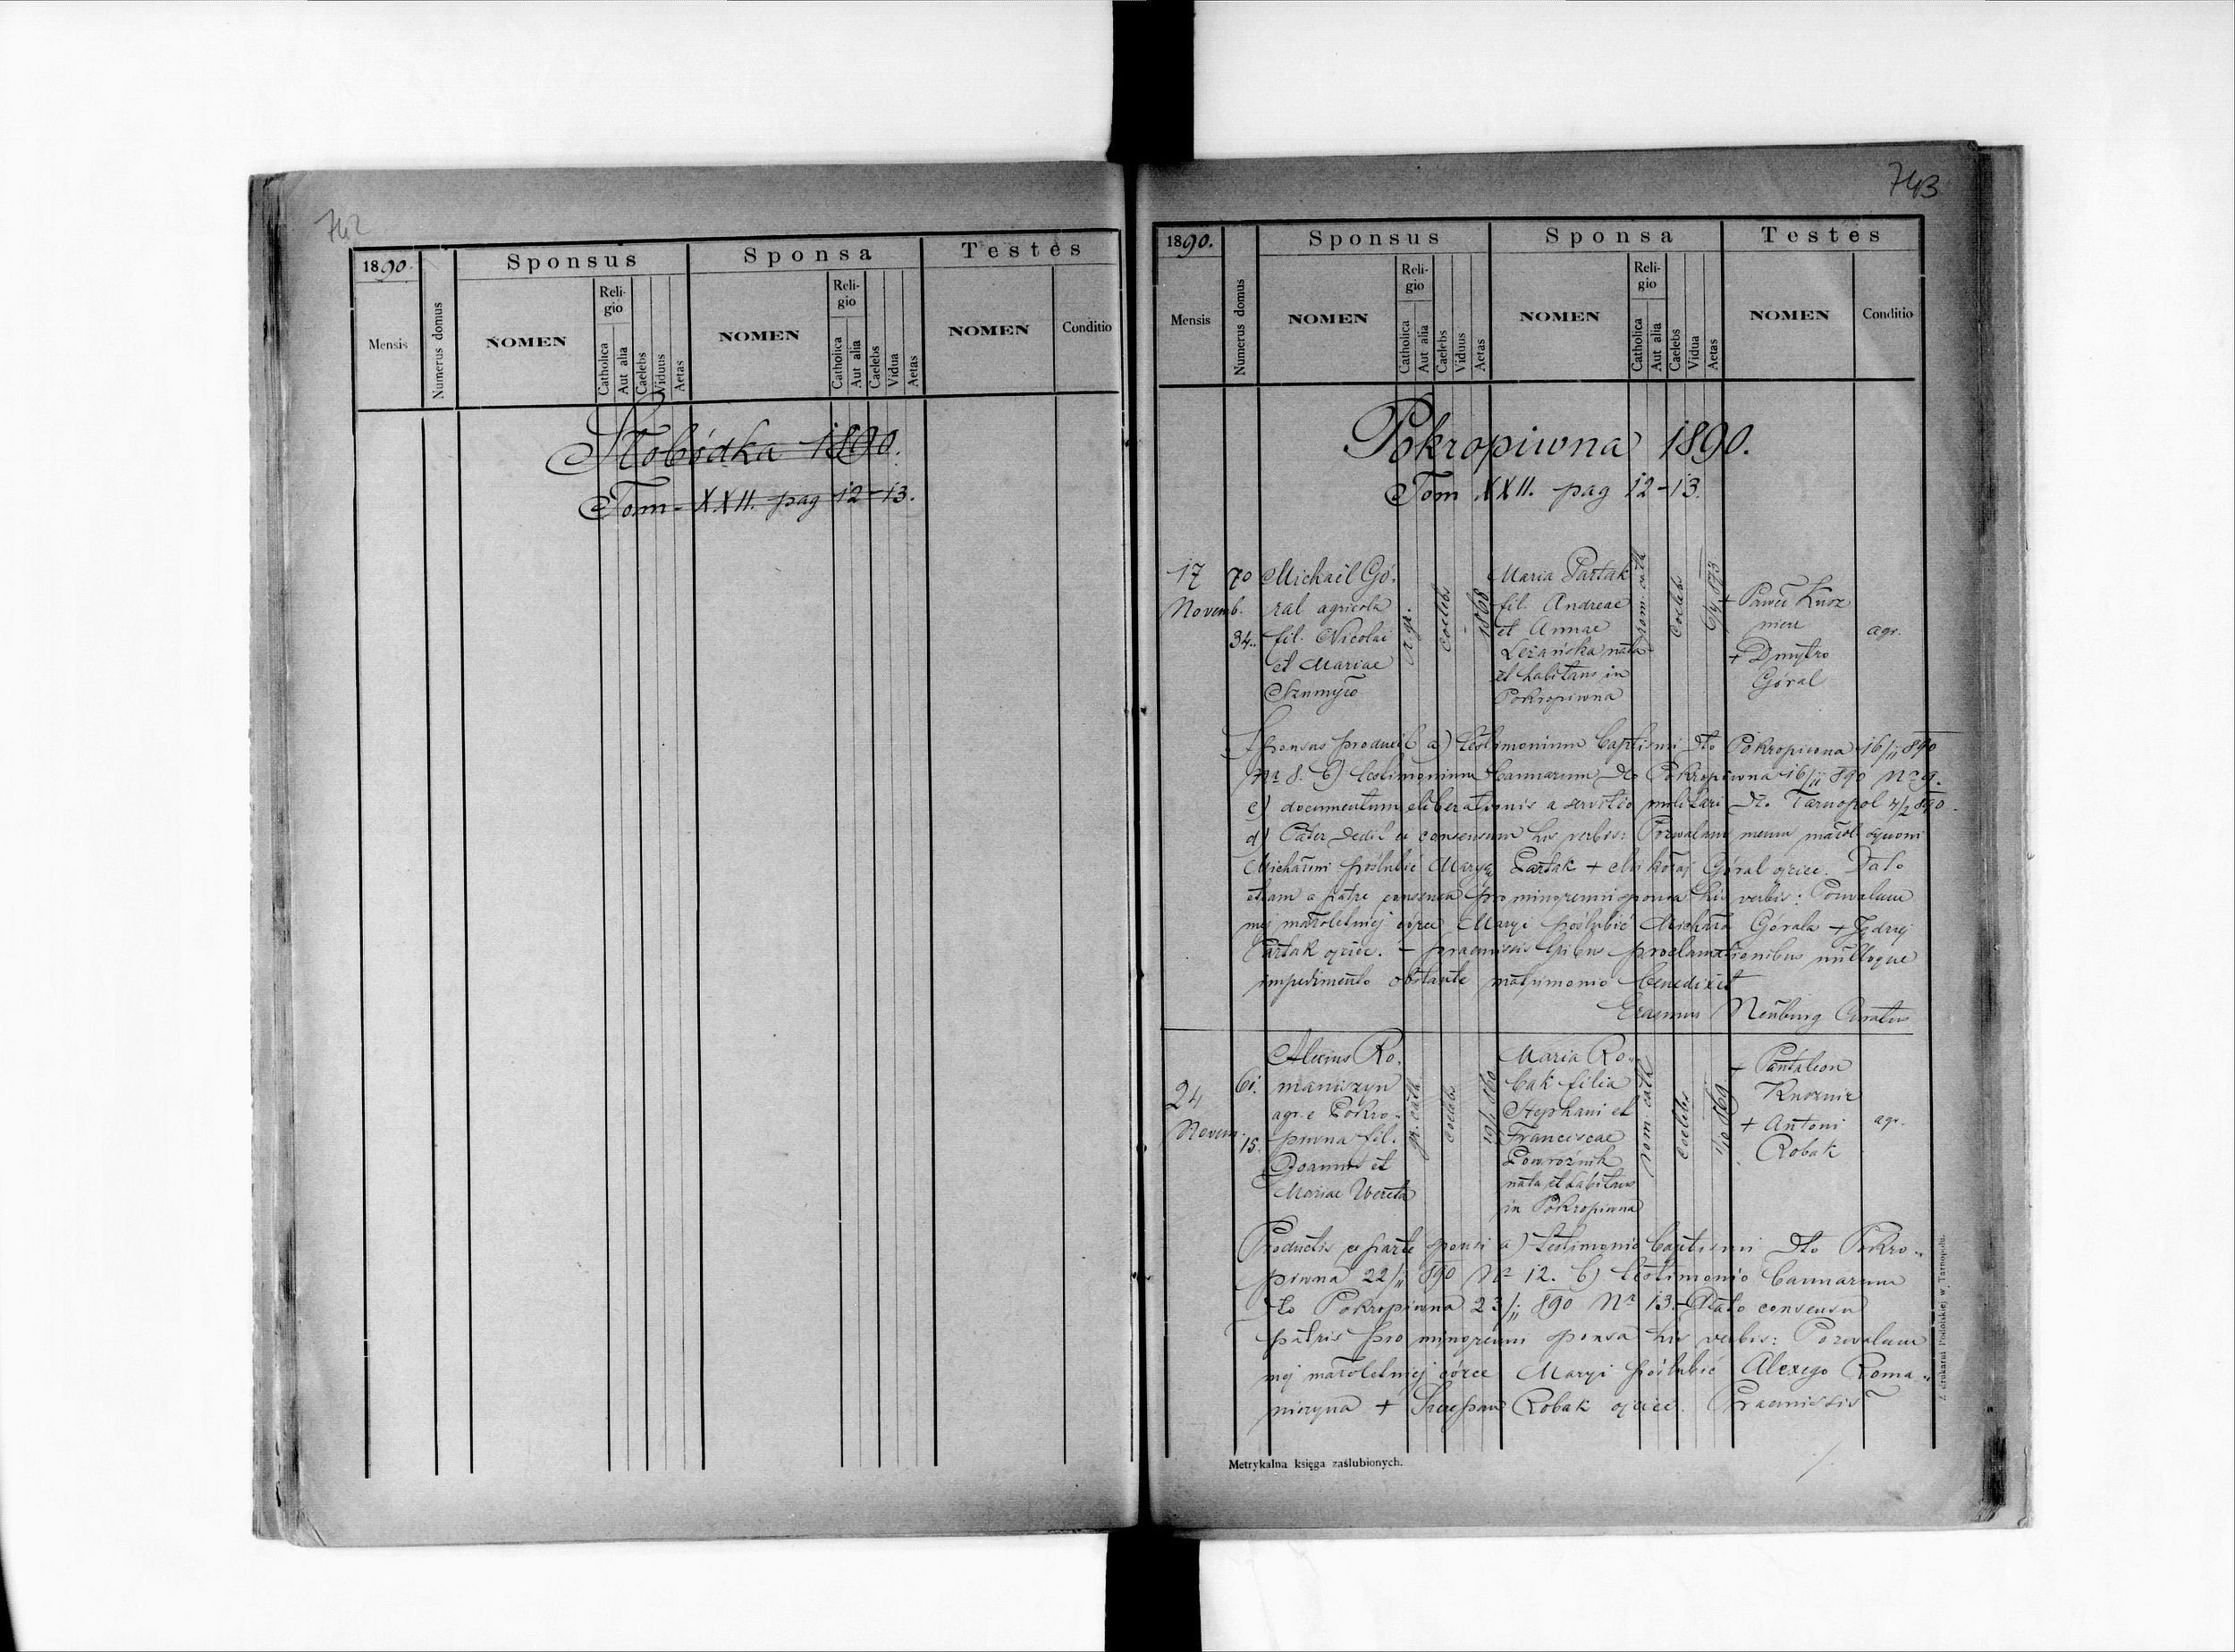 742
1890.
Sponsus
Sponsa
Testes
Mensis
Numerus domus
NOMEN
Religio
Catholica
Aut alia
Caelebs
Viduus
Aetas
NOMEN
Religio
Catholica
Aut alia
Caelebs
Vidua
Aetas
NOMEN
Conditio
Słobódka 1890.
Tom XXII. pag 12-13.
743
1890.
Sponsus
Sponsa
Testes
Mensis
Numerus domus
NOMEN
Religio
Catholica
Aut alia
Caelebs
Viduus
Aetas
NOMEN
Religio
Catholica
Aut alia
Caelebs
Vidua
Aetas
NOMEN
Conditio
Pokropiwna 1890.
Tom XXII. pag 12-13.
17
Novemb.
70
34.
Michaël Gó-
ral agricola
fil. Nicolai
et Mariae
r. gr.
coelebs
1868
Maria Partak
fil. Andreae
et Annae
Leżańska nata
et habitans in
Pokropiwna
rom. cath
coelebs
+ Paweł Kusz
nierz
+ Dmytro
Góral
agr.
Sponsus produxit a) testimonium baptismi dto Pokropiwna 16/11 890
Nr 8. b) testimonium bannorum dto Pokropiwna 16/11 890 Nr 9.
c) documentum liberationis a servitio militari dto Tarnopol 4/2 890.
d) Pater dedit ei consensum his verbis: Pozwalam memu małol. synowi
Michałowi poślubić Maryę Partak + Mikołaj Góral ojciec. Dato
etiam a patre consensu pro minorenni sponsa his verbis: Pozwalam
mej małoletniej córce Maryi poślubić Michała Górala + Jędrzej
Partak ojciec. - praemissis tribus proclamationibus nulloque
impedimento obstante matrimonio benedixit
Erasmus Neuburg Curatus
24
Novem.
61.
15.
Alexius Ro-
maniszyn
agr. e Pokro-
piwna fil.
Joannis et
Mariae Wereta
gr. cath.
coelebs
19/2 860
Maria Ro-
bak filia
Stephani et
Franciscae
Powroźnik
nata et habitans
in Pokropiwna
rom. cath
coelebs
1/10 869
+ Pantaleon
Kusznir
+ Antoni
Robak
agr.
Productis ex parte sponsi a) testimonio baptismi dto Pokro-
piwna 22/11 890 Nr 12. b) testimonio bannorum
dto Pokropiwna 23/11 890 Nr 13. - Dato consensu
patris pro minorenni sponsa his verbis: Pozwalam
mej małoletniej córce Maryi poślubić Alexego Roma-
niszyna + Szczepan Robak ojciec. Praemissis
Metrykalna księga zaślubionych.
Z drukarni Podolskiej w Tarnopolu.